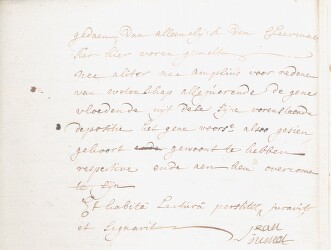 gedaen, Dan alleenlijck Den Heer
hier voren gemelt
Nec aliter nec amplius voor redene
van wetenschap allegeerende de gene
vloedende uijt dese sijne vorenstaende
depositie het gene voorsc. alsoo gesien,
gehoort ende gewoont te hebben
respective ende aen hem overcomen
te sijn
Et habita Lectura persistit, juravit
et Signavit
Jean